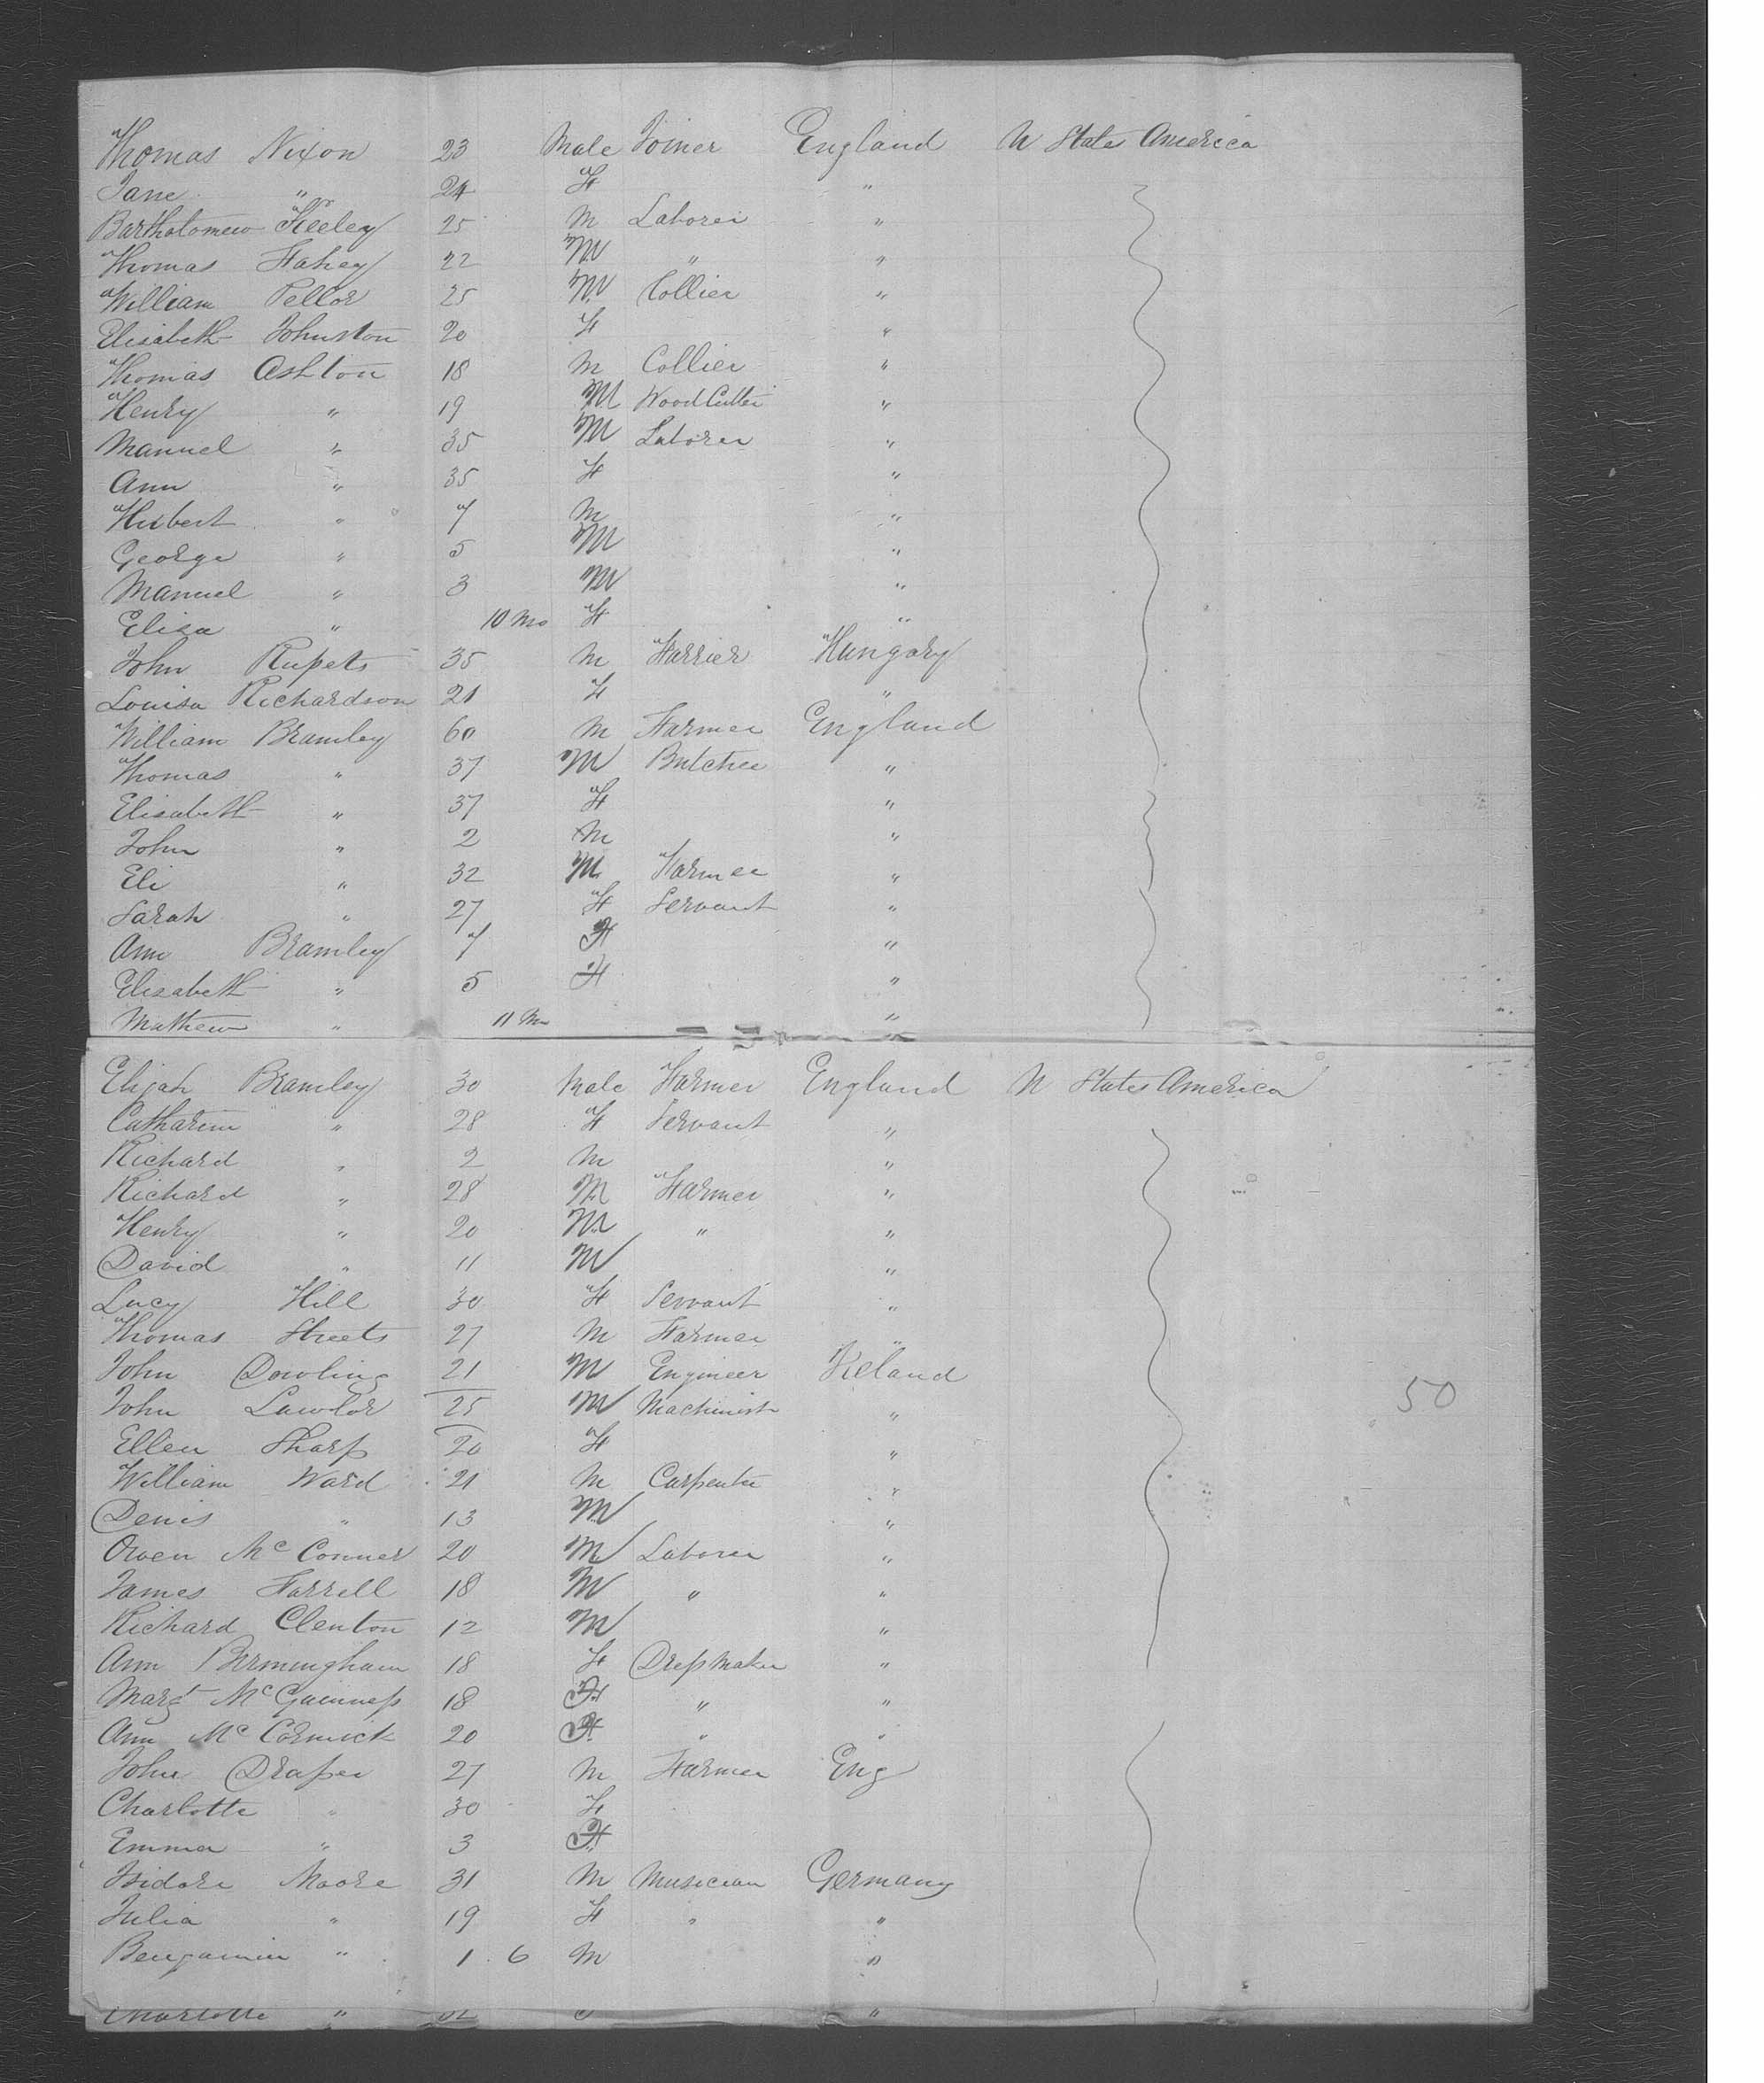 Thomas Nixon 23 Male Joiner England U States America
Jane " 24 F "
Bartholomew Keeley 25 M Laborer "
Thomas Fahey 22 M " "
William Pellor 25 M Collier "
Elisabeth Johnston 20 F "
Thomas Ashton 18 M Collier "
Henry " 19 M Wood Cutter "
Manuel " 35 M Laborer "
Ann " 35 F "
Herbert " 7 M "
George " 5 M "
Manuel " 3 M "
Eliza " 10 Mo F "
John Rupets 35 M Farrier Hungary
Louisa Richardson 21 F "
William Bramley 60 M Farmer England
Thomas " 37 M Butcher "
Elisabeth " 37 F "
John " 2 M "
Eli " 32 M Farmer "
Sarah " 27 F Servant "
Ann Bramley 7 F "
Elizabeth " 5 F "
Mathew " 11 Mo "
Elijah Bramley 30 Male Farmer England U States America
Catharine " 28 F Servant "
Richard " 2 M "
Richard " 28 M Farmer "
Henry " 20 M " "
David " 11 M "
Lucy Hill 30 F Servant "
Thomas Streets 27 M Farmer "
John Dowling 21 M Engineer Ireland
John Lawlor 25 M Machinist "
50
Ellen Sharp 20 F "
William Ward 21 M Carpenter "
Denis " 13 M "
Owen McConner 20 M Laborer "
James Farrell 18 M " "
Richard Clenton 12 M "
Ann Birmingham 18 F Dress Maker "
Margt McGuinness 18 F " "
Ann McCormick 20 F " "
John Draper 27 M Farmer Eng
Charlotte " 30 F
Emma " 3 F
Isidore Moore 31 M Musician Germany
Julia " 19 F " "
Benjamin " 1 . 6 M "
Charlotte " "